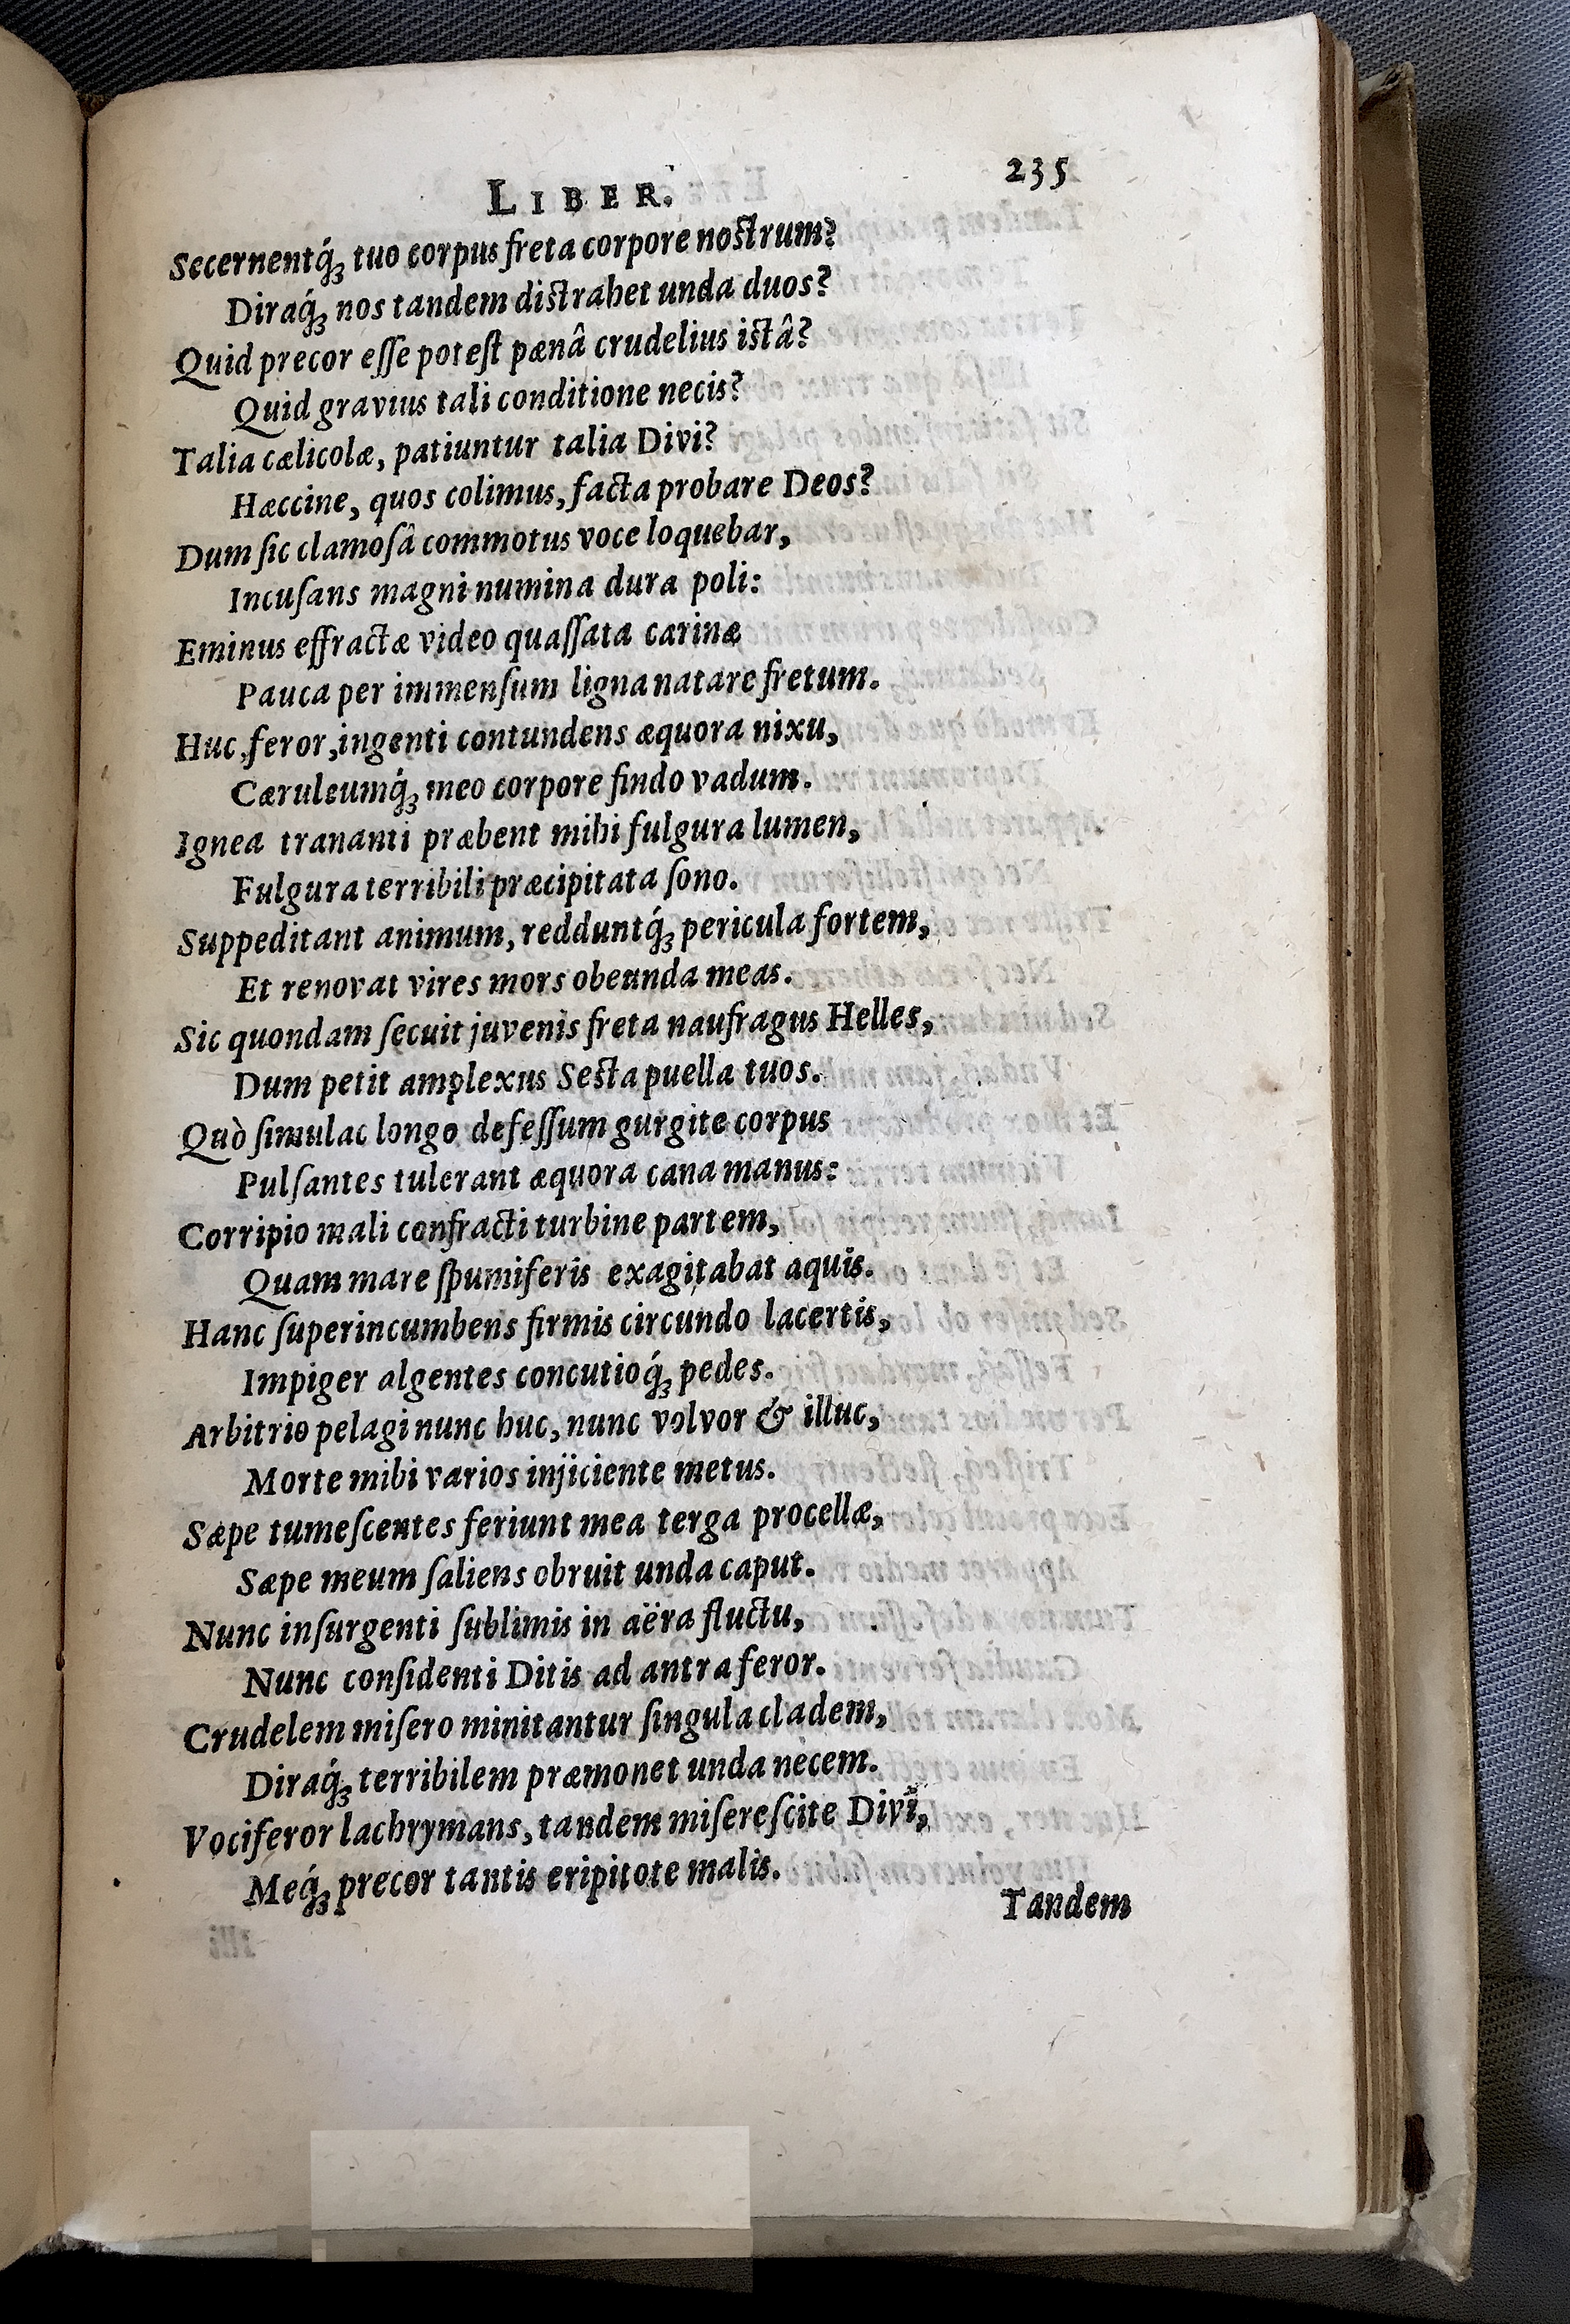 LIBER. 235
Secernentq́ꝫ tuo corpus freta corpore nostrum?
Diraq́ꝫ nos tandem distrahet unda duos?
Quid precor eſſe poteſt pænâ crudelius istâ?
Quid gravius tali conditione necis?
Talia cælicolæ, patiuntur talia Divi?
Hæccine, quos colimus, facta probare Deos?
Dum ſic clamoſâ commotus voce loquebar,
Incuſans magni numina dura poli:
Eminus effractæ video quaſſata carinæ
Pauca per immenſum ligna natare fretum.
Huc, feror, ingenti contundens æquora nixu,
Cæruleumq́ꝫ meo corpore findo vadum.
Ignea trananti præbent mihi fulgura lumen,
Fulgura terribili præcipitata ſono.
Suppeditant animum, redduntq́ꝫ pericula fortem,
Et renovat vires mors obeunda meas.
Sic quondam ſecuit juvenis freta naufragus Helles,
Dum petit amplexus Sesta puella tuos.
Quò ſimulac longo defeſſum gurgite corpus
Pulſantes tulerant æquora cana manus:
Corripio mali confracti turbine partem,
Quam mare ſpumiferis exagitabat aquis.
Hanc ſuperincumbens firmis circundo lacertis,
Impiger algentes concutioq́ꝫ pedes.
Arbitrio pelagi nunc huc, nunc volvor & illuc,
Morte mihi varios injiciente metus.
Sæpe tumeſcentes feriunt mea terga procellæ,
Sæpe meum ſaliens obruit unda caput.
Nunc inſurgenti ſublimis in aëra fluctu,
Nunc conſidenti Ditis ad antra feror.
Crudelem miſero minitantur ſingula cladem,
Diraq́ꝫ terribilem præmonet unda necem.
Vociferor lachrymans, tandem miſereſcite Divi,
Meq́ꝫ precor tantis eripitote malis.
Tandem